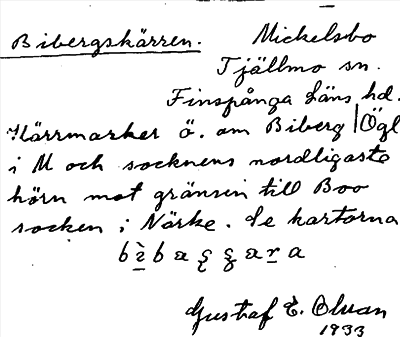 Bibergskärren. Mickelsbo
Tjällmo sn.
Finspånga läns hd.
Kärrmarker ö. om Biberg Ögl
i M och socknens nordligaste
hörn mot gränsen till Boo
socken i Närke. Se kartorna
Gustaf E. Olvan
1933